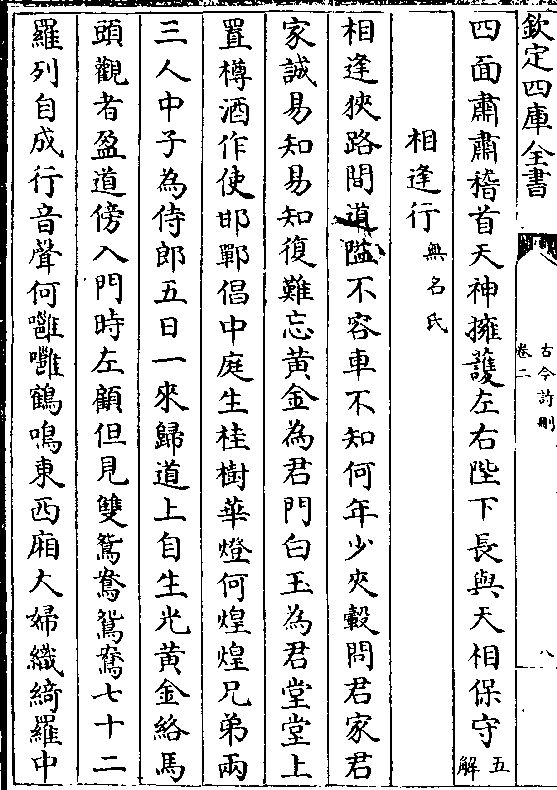 欽定四庫全書
古今詩刪
卷二
八
四面肅肅稽首天神擁護左右陛下長與天相保守五解
相逢行無名氏
相逢狹路間道隘不容車不知何年少夾轂問君家君
家誠易知易知復難忘黃金為君門白玉為君堂堂上
置樽酒作使邯鄲倡中庭生桂樹華燈何煌煌兄弟兩
三人中子為侍郎五日一來歸道上自生光黃金絡馬
頭觀者盈道傍入門時左顧但見雙鴛鴦鴛鴦七十二
羅列自成行音聲何噰噰鶴鳴東西廂大婦織綺羅中